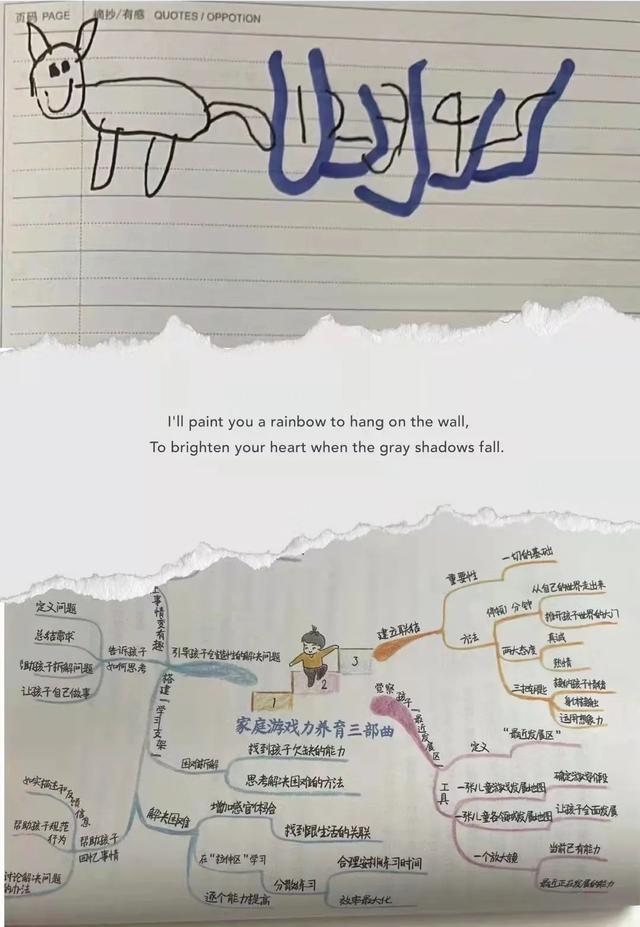 页码 PAGE 摘抄/有感 QUOTES / OPPOTION
1 2 3 4 5
I'll paint you a rainbow to hang on the wall,
To brighten your heart when the gray shadows fall.
家庭游戏力养育三部曲
1
2
3
建立联结
重要性
一切的基础
方法
停顿1分钟
从自己的世界走出来
推开孩子世界的大门
两大态度
真诚
热情
接纳孩子情绪
身体接触
运用想象力
觉察孩子"最近发展区"
定义
"最近发展区"
工具
一张儿童游戏发展地图
确定游戏阶段
一张儿童各领域发展地图
让孩子全面发展
一个放大镜
当前已有能力
最近正在发展的能力
引导孩子创造性的解决问题
上事情变有趣
告诉孩子
如何思考
定义问题
总结需求
帮助孩子拆解问题
让孩子自己做事
搭建"学习支架"
困难拆解
找到孩子欠缺的能力
思考解决困难的方法
解决困难
增加感官体验
找到跟生活的关联
在"拉伸区"学习
逐个能力提高
分散练习
合理安排练习时间
效率最大化
帮助孩子
回忆事情
如实描述和反馈
信息
帮助孩子规范
行为
讨论解决问题
的办法